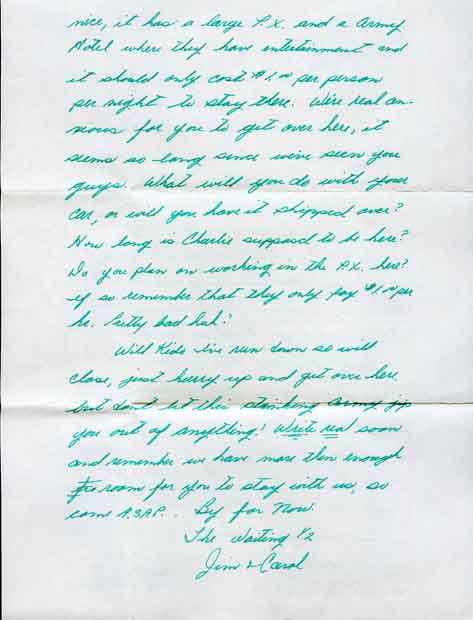 nice, it has a large P.X. and a Army
Hotel where they have entertainment and
it should only cost $1.00 per person
per night to stay there. We're real an-
xious for you to get over here, it
seems so long since we've seen you
guys. What will you do with your
car, or will you have it shipped over?
How long is Charlie supposd to be here?
Do you plan on working in the P.X. here?
if so remember that they only pay $1.00 per
hr. Pretty bad huh?
Will Kids I've run down so will
close, just hurry up and get over here.
but don't let this stinking Army jip
you out of anything! Write real soon
and remember we have more then enough
room for you to stay with us, so
come A.S.A.P... By for Now.
The Waiting 1/2
Jim & Carol